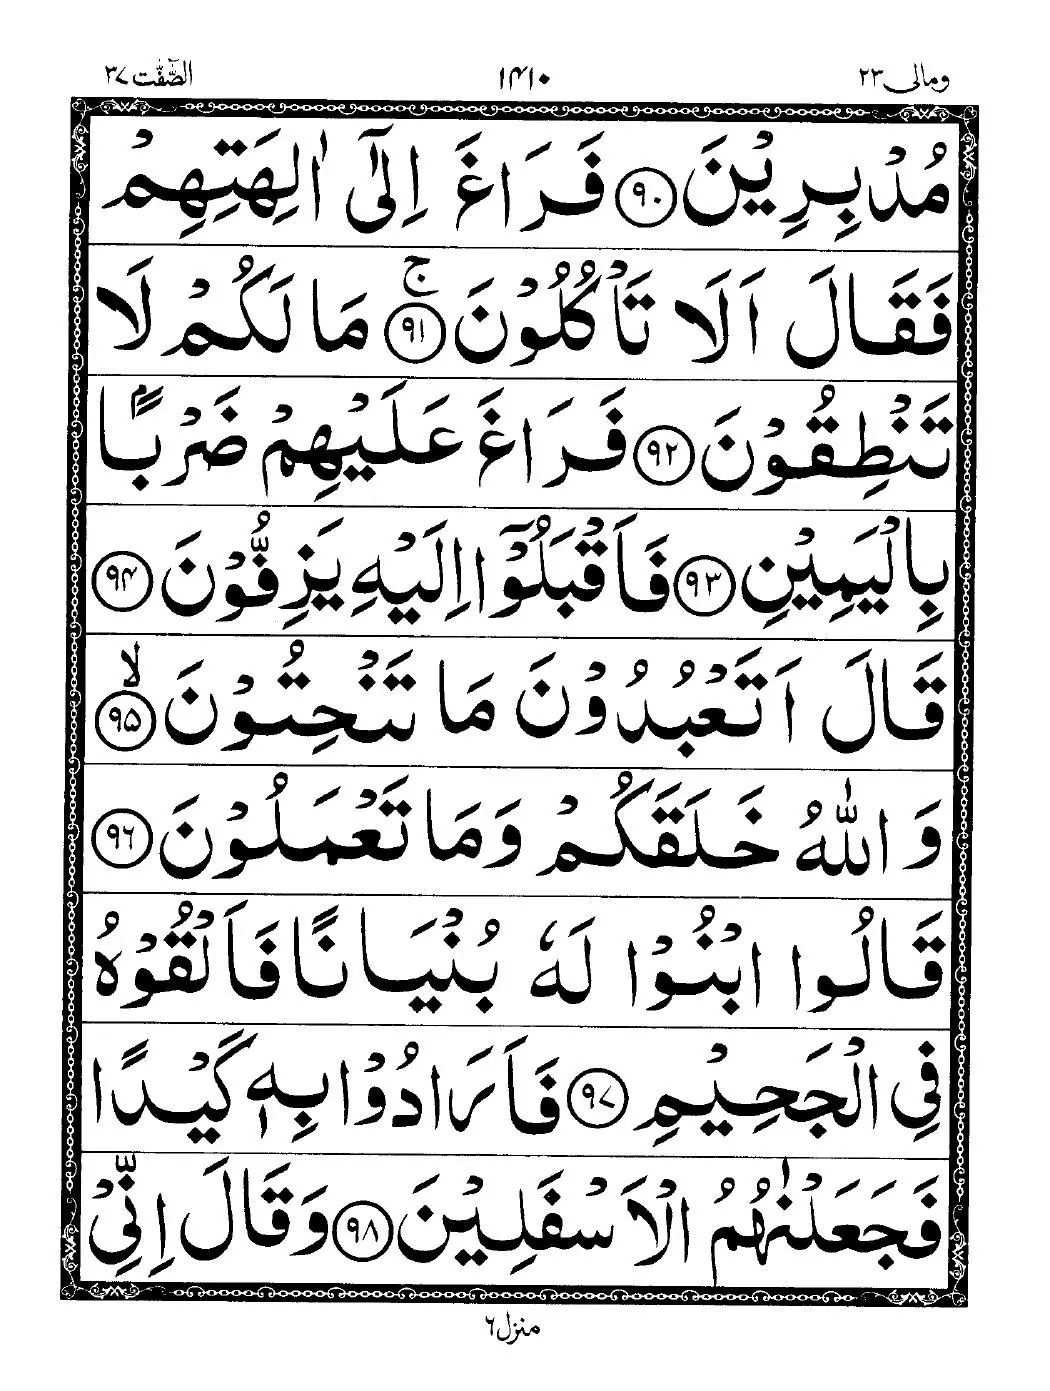 ومالی ۲۳ ۱۴۱۰ الصّٰٓفّٰت ۳۷
مُدْبِرِیْنَ ۹۰ فَرَاغَ اِلٰۤی اٰلِهَتِهِمْ
فَقَالَ اَلَا تَاْكُلُوْنَ ۹۱ ج مَا لَكُمْ لَا
تَنْطِقُوْنَ ۹۲ فَرَاغَ عَلَیْهِمْ ضَرْبًۢا
بِالْیَمِیْنِ ۹۳ فَاَقْبَلُوْۤا اِلَیْهِ یَزِفُّوْنَ ۹۴
قَالَ اَتَعْبُدُوْنَ مَا تَنْحِتُوْنَ ۹۵ لا
وَ اللّٰهُ خَلَقَكُمْ وَمَا تَعْمَلُوْنَ ۹۶
قَالُوا ابْنُوْا لَهٗ بُنْیَانًا فَاَلْقُوْهُ
فِی الْجَحِیْمِ ۹۷ فَاَرَادُوْا بِهٖ كَیْدًا
فَجَعَلْنٰهُمُ الْاَسْفَلِیْنَ ۹۸ وَقَالَ اِنِّیْ
منزل ۶